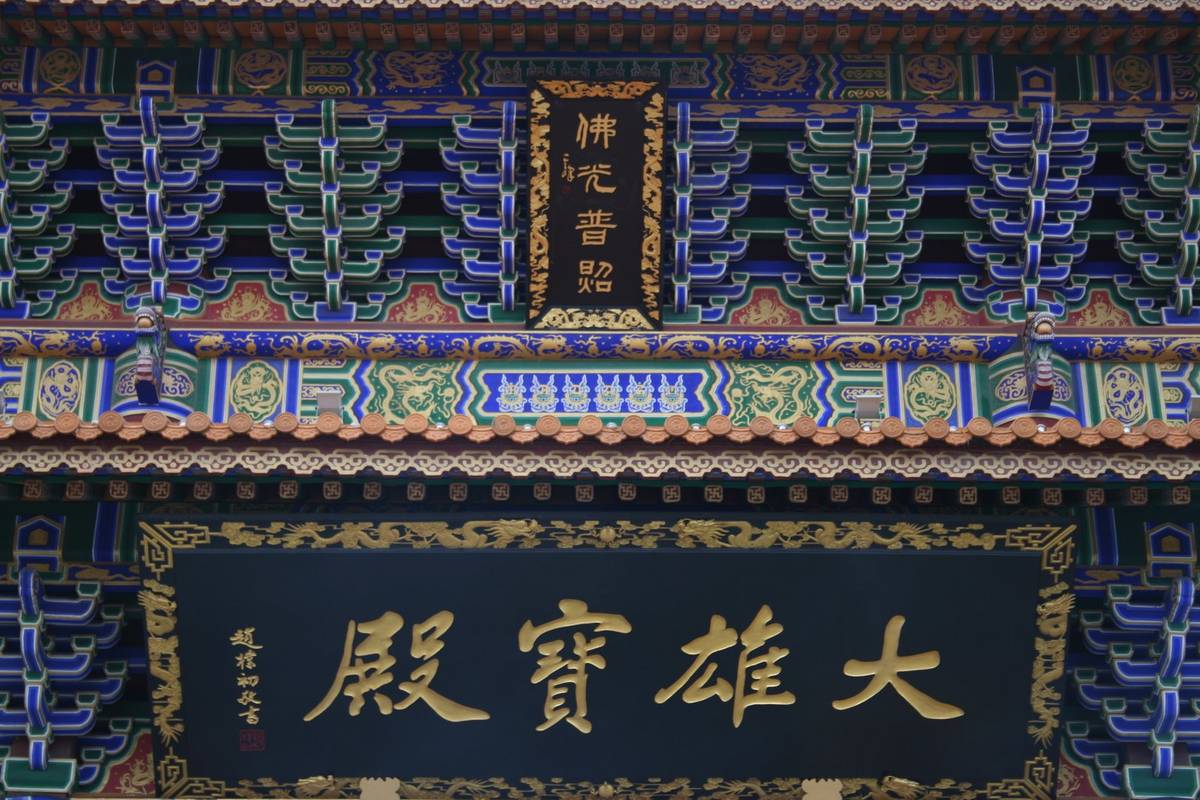 佛光普照
大雄寶殿
趙樸初敬書